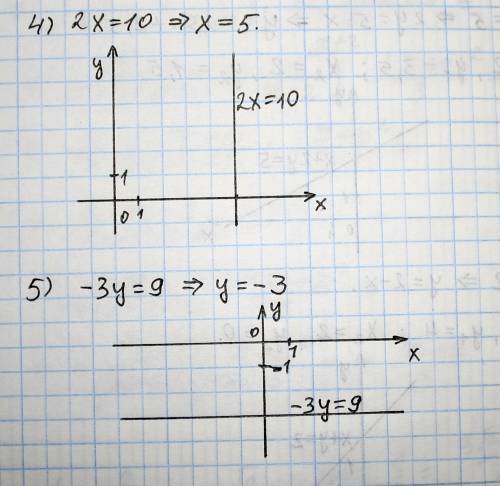 4) 2x=10 ⇒ x=5.
y
2x=10
1
0 1 x
5) -3y=9 ⇒ y=-3
y
0 1 x
-1
-3y=9